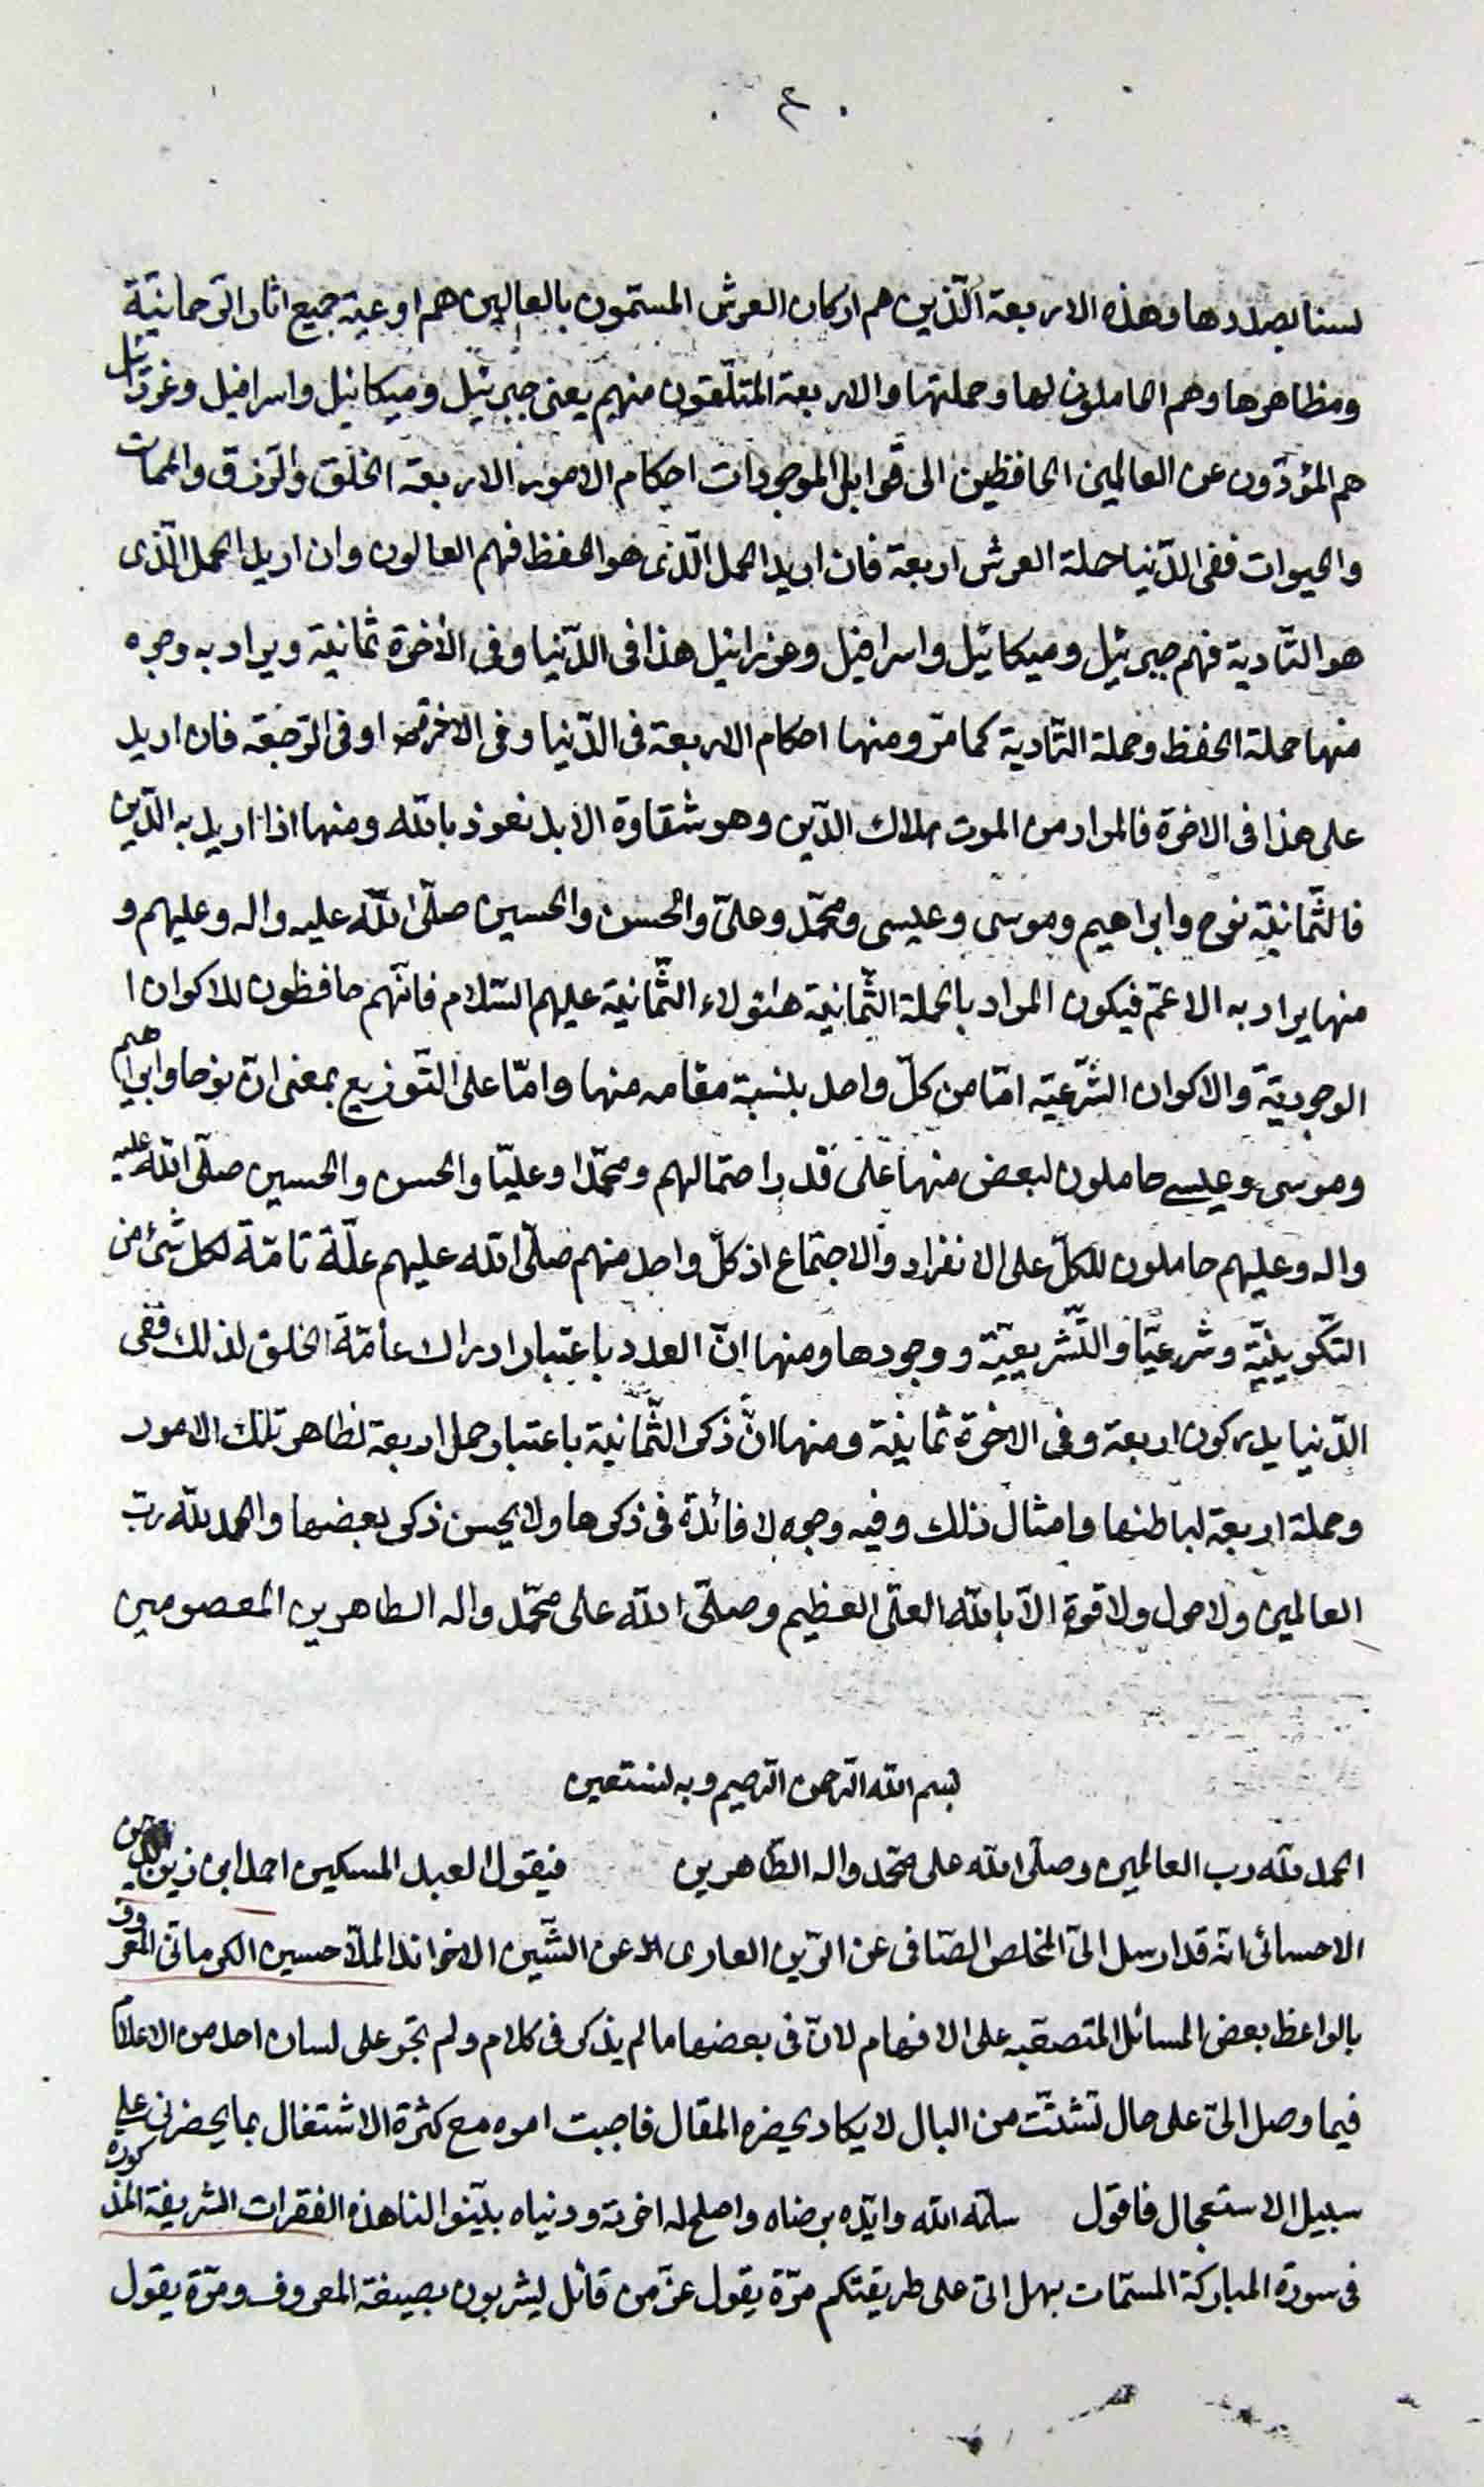 ٤
لسنا بصددها وهذه الاربعة الّذين هم اركان العرش المستمون بالعالين هم اوعية جميع اثار الرّحمانيّة
ومظاهرها وهم الحاملون لها وحملتها والاربعة المتلّقون منهم يعنى جبرئيل وميكائيل واسرافيل وعزرائيل
هم المؤدّون عن العالين الحافظين الى قوابل الموجودات احكام الامور الاربعة الخلق والرّزق والممات
والحيوات ففى الدّنيا حملة العرش اربعة فان اريد الحمل الّذى هو الحفظ فهم العالون وان اريد الحمل الّذى
هو التّادية فهم جبرئيل وميكائيل واسرافيل وعزرائيل هذا فى الدّنيا وفى الاخرة ثمانية ويراد به وجوه
منها حملة الحفظ وحملة التّادية كما مرّ ومنها احكام الاربعة فى الدّنيا وفى الاخرة او فى الرّجعة فان اريد
على هذا فى الاخرة فالمراد من الموت هلاك الدّين وهو شقاوة الابد نعوذ بالله ومنها اذا اريد به الدّين
فالثّمانية نوح وابراهيم وموسى وعيسى ومحمّد وعلىّ والحسن والحسين صلّى الله عليه واله وعليهم و
منها يراد به الاعمّ فيكون المراد بالحملة الثّمانية هئولاء الثّمانية عليهم السّلام فانّهم حافظون للاكوان ا
الوجوديّة والاكوان الشّرعيّه امّا من كلّ واحد بنسبة مقامه منها وامّا على التّوزيع بمعنى انّ نوحا وابراهيم
وموسى وعيسى حاملون لبعض منها على قدر احتمالهم ومحمّدا وعليّا والحسن والحسين صلّى الله عليه
واله وعليهم حاملون للكلّ على الانفراد والاجتماع اذ كلّ واحد منهم صلّى الله عليهم علّة تامّة لكل شئ من
التّكوينيّة وشرعيّا والتّشريعيّة ووجودها ومنها انّ العدد باعتبار ادراك عامّة الخلق لذلك ففى
الدّنيا يدركون اربعة وفى الاخرة ثمانية ومنها انّ ذكر الثّمانية باعتبار حمل اربعة لظاهر تلك الامور
وحملة اربعة لباطنها وامثال ذلك وفيه وجوه لا فائدة فى ذكرها ولا يحسن ذكر بعضها والحمد لله ربّ
العالمين ولا حول ولا قوة الّا بالله العلّى العظيم وصلّى الله على محمّد واله الطاهرين المعصومين
بسم الله الرّحمن الرّحيم وبه نستعين
الحمد لله رب العالمين وصلّى الله على محمّد واله الطّاهرين فيقول العبد المسكين احمد ابن زين الدين
الاحسائى انّه قد ارسل الىّ المخلص الصّافى عن الرّين العارى عن الشّين الاخوند الملّا حسين الكرمانى المعروف
بالواعظ بعض المسائل المتصعّبه على الافهام لانّ فى بعضها ما لم يذكر فى كلام ولم تجر على لسان احد من الاعلام
فيما وصل الىّ على حال تشتّت من البال لا يكاد يحضره المقال فاجبت امره مع كثرة الاشتغال بما يحضرنى على
سبيل الاستعجال فاقول سلّمه الله وايّده برضاه واصلح له اخرته ودنياه بيّنوا لنا هذه الفقرات الشريفة المذكورة
فى سورة المباركة المسمّات بهل اتى على طريقتكم مرّة يقول عزّ من قائل يشربون بصيغة المعروف ومرّة يقول